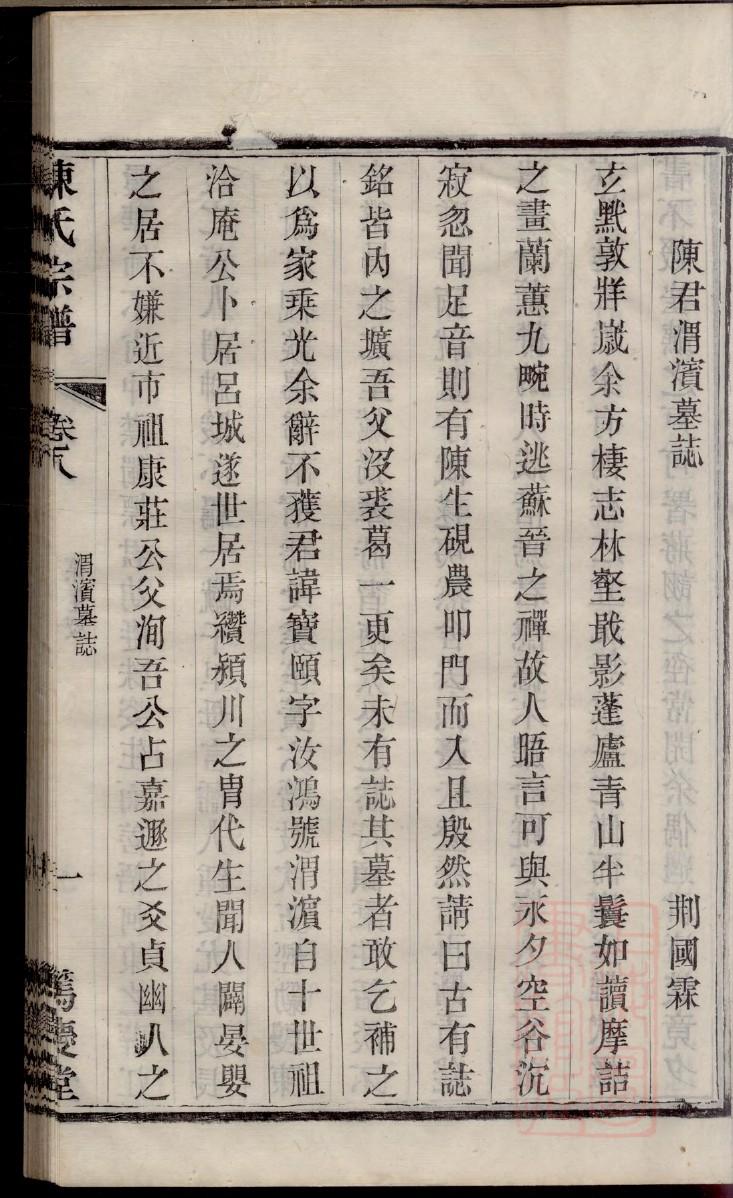 陳君渭濱墓誌　荆國霖
玄黓敦牂歲余方棲志林壑戢影蓬廬青山半鬟如讀摩詰
之畫蘭蕙九畹時逃蘇晉之禪故人晤言可與永夕空谷沉
寂忽聞足音則有陳生硯農叩門而入且殷然請曰古有誌
銘皆內之壙吾父沒裘葛一更矣未有誌其墓者敢乞補之
以爲家乗光余辭不獲君諱寶頤字汝鴻號渭濵自十世祖
洽庵公卜居呂城遂世居焉纘潁川之胄代生聞人闢晏嬰
之居不嫌近市祖康莊公父洵吾公占嘉遯之爻貞幽人之
陳氏宗譜
卷八
渭濱墓誌
一
篤慶堂